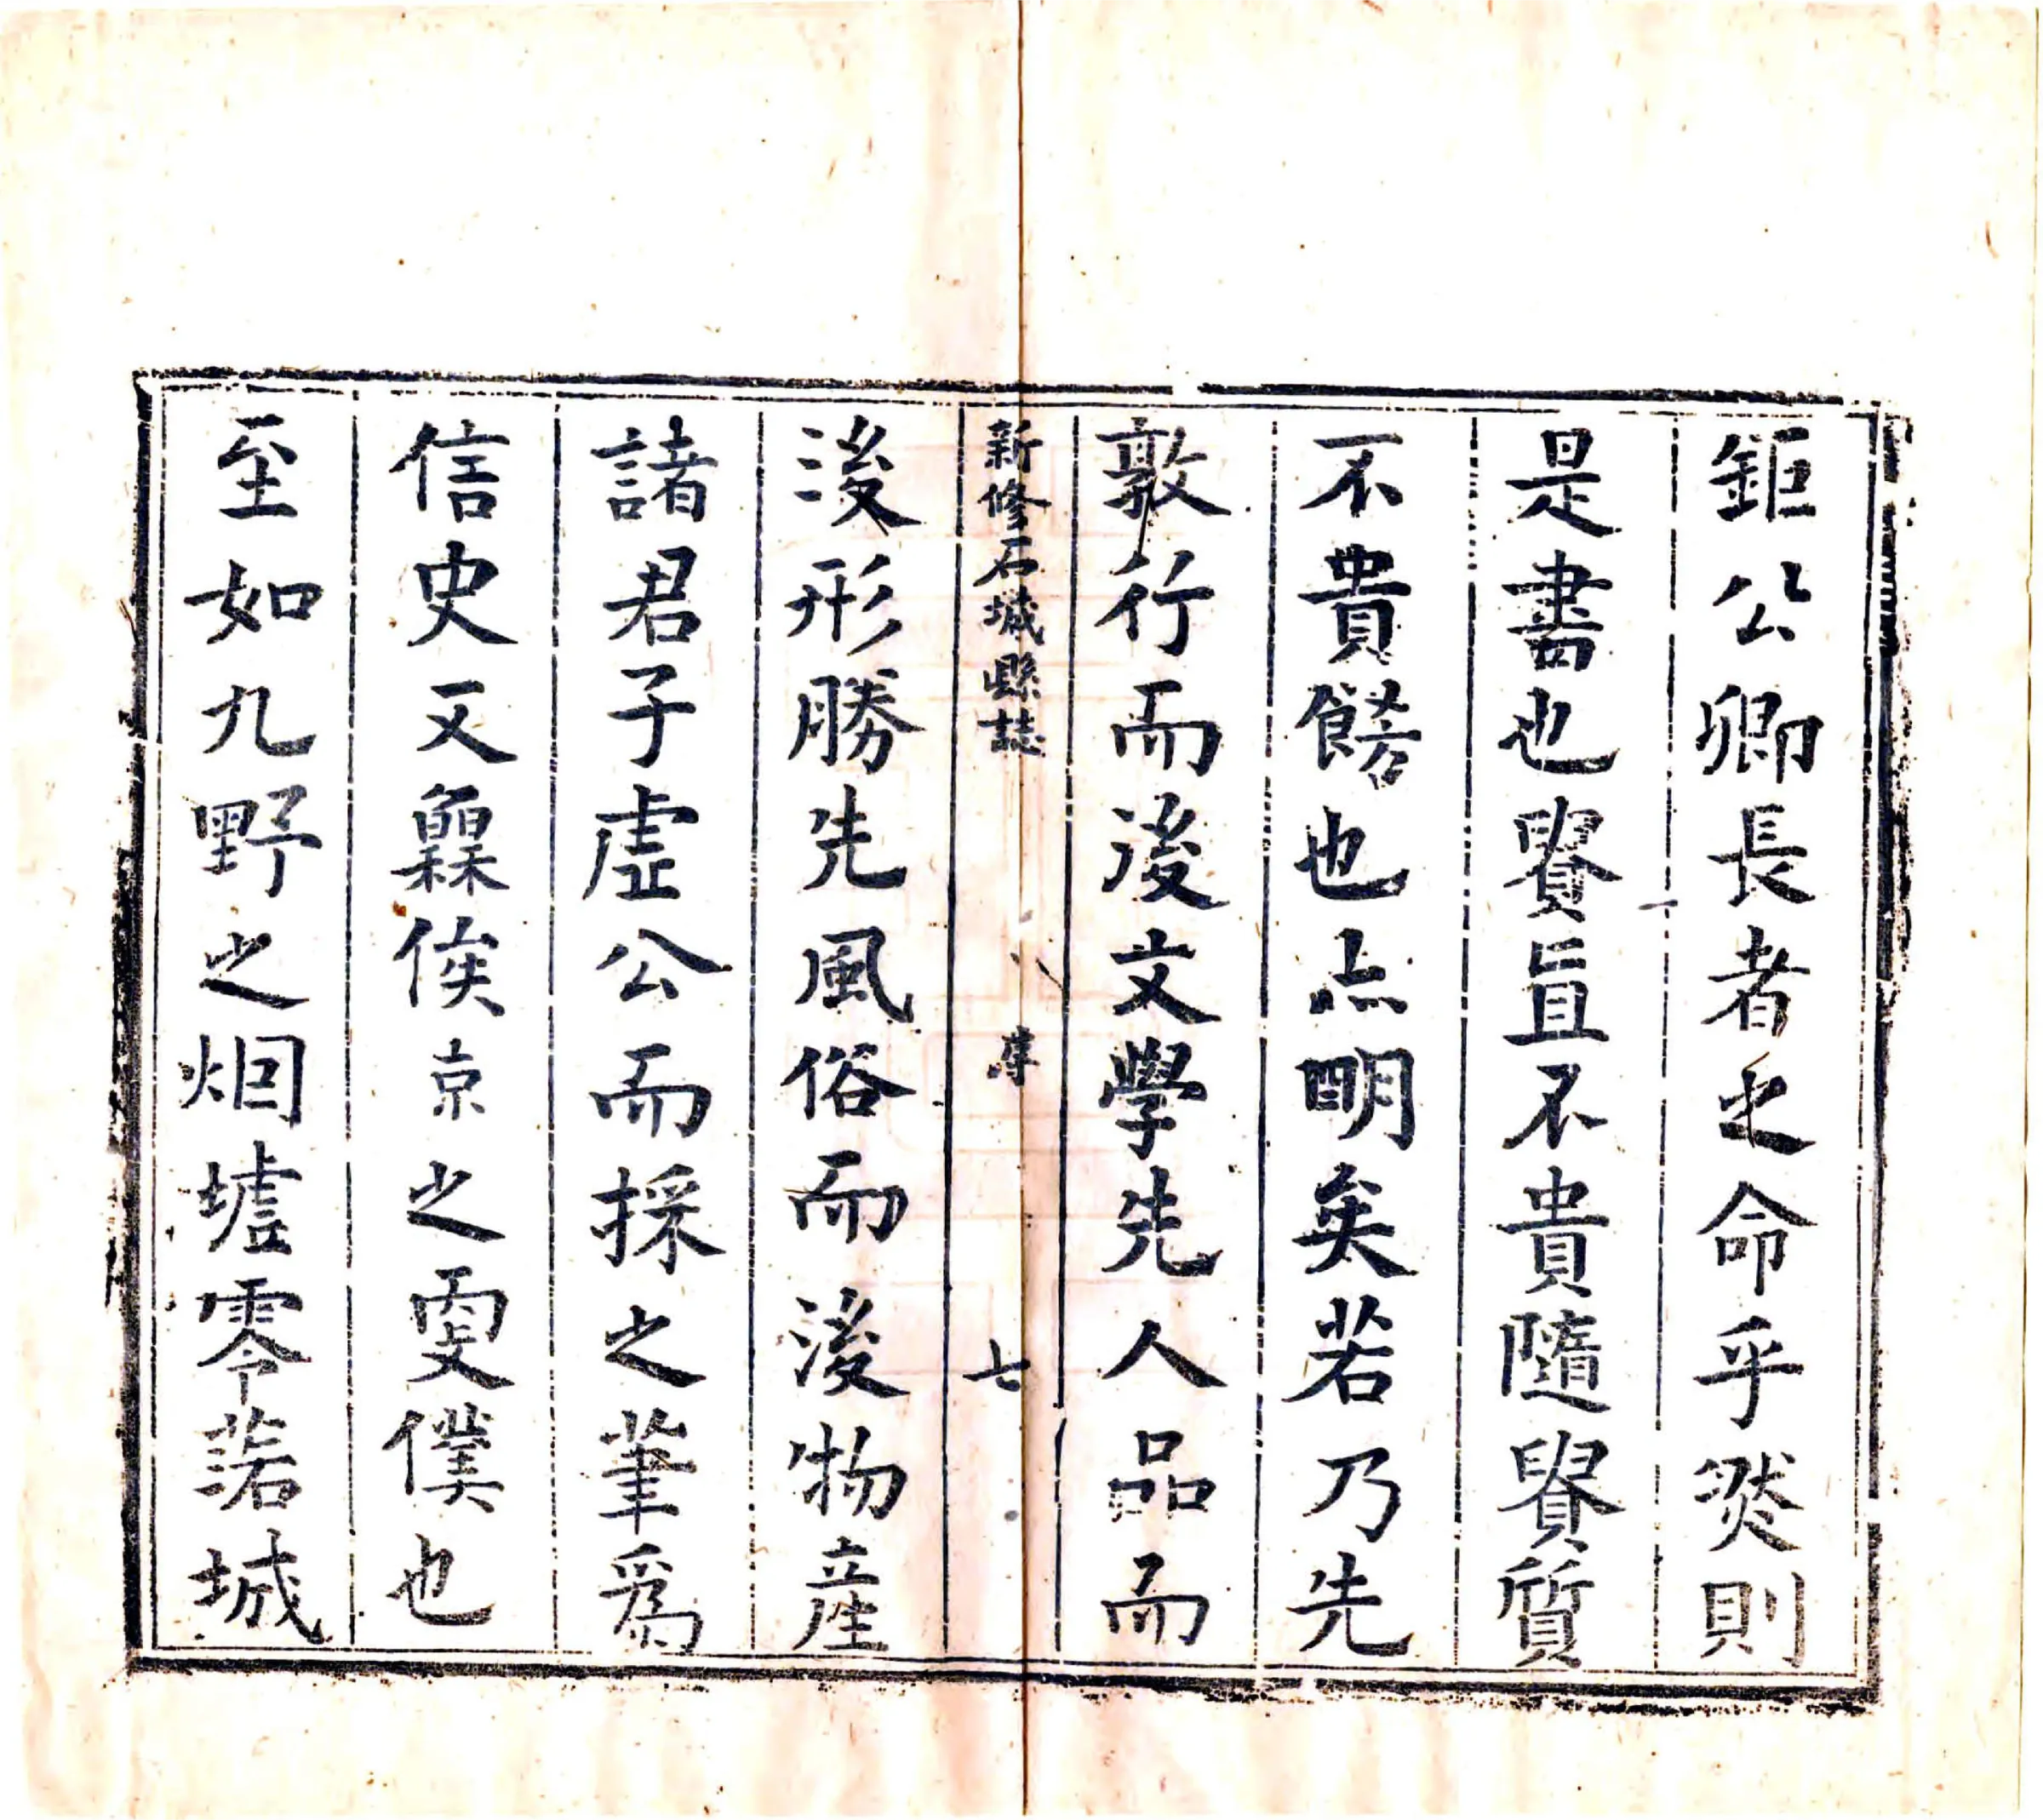 鉅公卿長者之命乎然則
是書也貴直不貴隨貴質
不貴餙也亦明矣若乃先
敦行而後文學先人品而
新修石城縣誌 序 七
後形勝先風俗而後物產
諸君子虛公而採之筆爲
信史又俟京之更僕也
至如九野之烟墟零落城